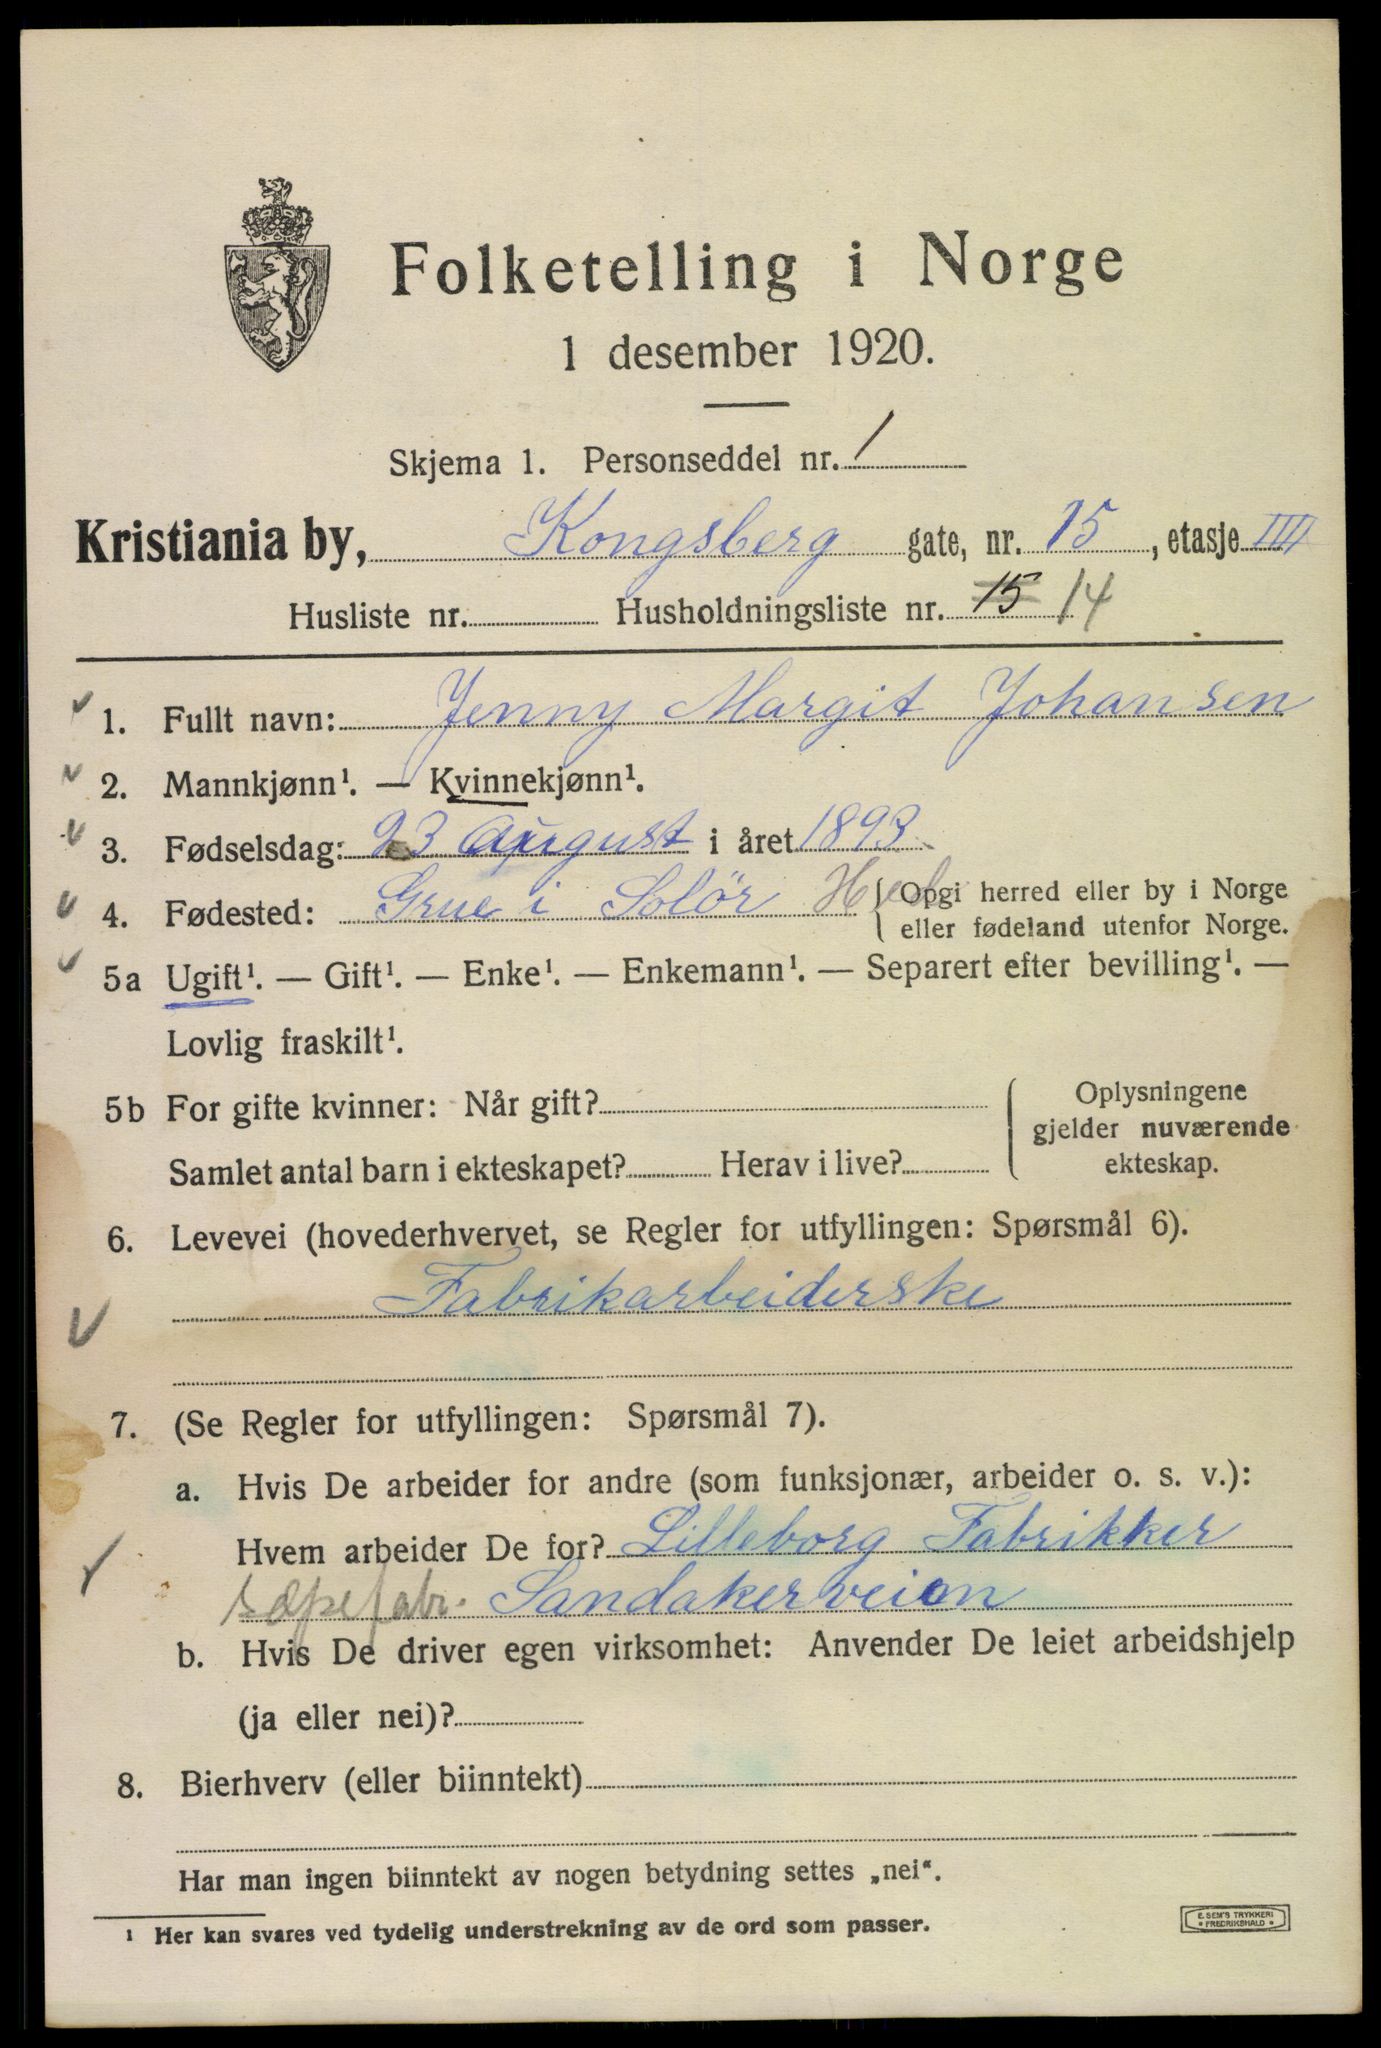 Folketelling i Norge
1 desember 1920.
Skjema 1. Personseddel nr. 1
Kristiania by, Kongsberg gate, nr. 15, etasje IIII
Husliste nr. Husholdningsliste nr. 15 14
1. Fullt navn: Jenny Margit Johansen
2. Mannkjønn¹. — Kvinnekjønn¹.
3. Fødselsdag: 23 August i året 1893
4. Fødested: Grue i Solör
Opgi herred eller by i Norge
eller fødeland utenfor Norge.
5a Ugift¹. — Gift¹. — Enke¹. — Enkemann¹. — Separert efter bevilling¹. —
Lovlig fraskilt¹.
5b For gifte kvinner: Når gift?
Samlet antal barn i ekteskapet? Herav i live?
Oplysningene
gjelder nuværende
ekteskap.
6. Levevei (hovederhvervet, se Regler for utfyllingen: Spørsmål 6).
Fabrikarbeiderske
7. (Se Regler for utfyllingen: Spørsmål 7).
a. Hvis De arbeider for andre (som funksjonær, arbeider o. s. v.):
Hvem arbeider De for? Lilleborg Fabrikker
sæpefabr. Sandakerveien
b. Hvis De driver egen virksomhet: Anvender De leiet arbeidshjelp
(ja eller nei)?
8. Bierhverv (eller biinntekt)
Har man ingen biinntekt av nogen betydning settes „nei“.
¹ Her kan svares ved tydelig understrekning av de ord som passer.
E. SEM'S TRYKKERI
* FREDRIKSHALD *